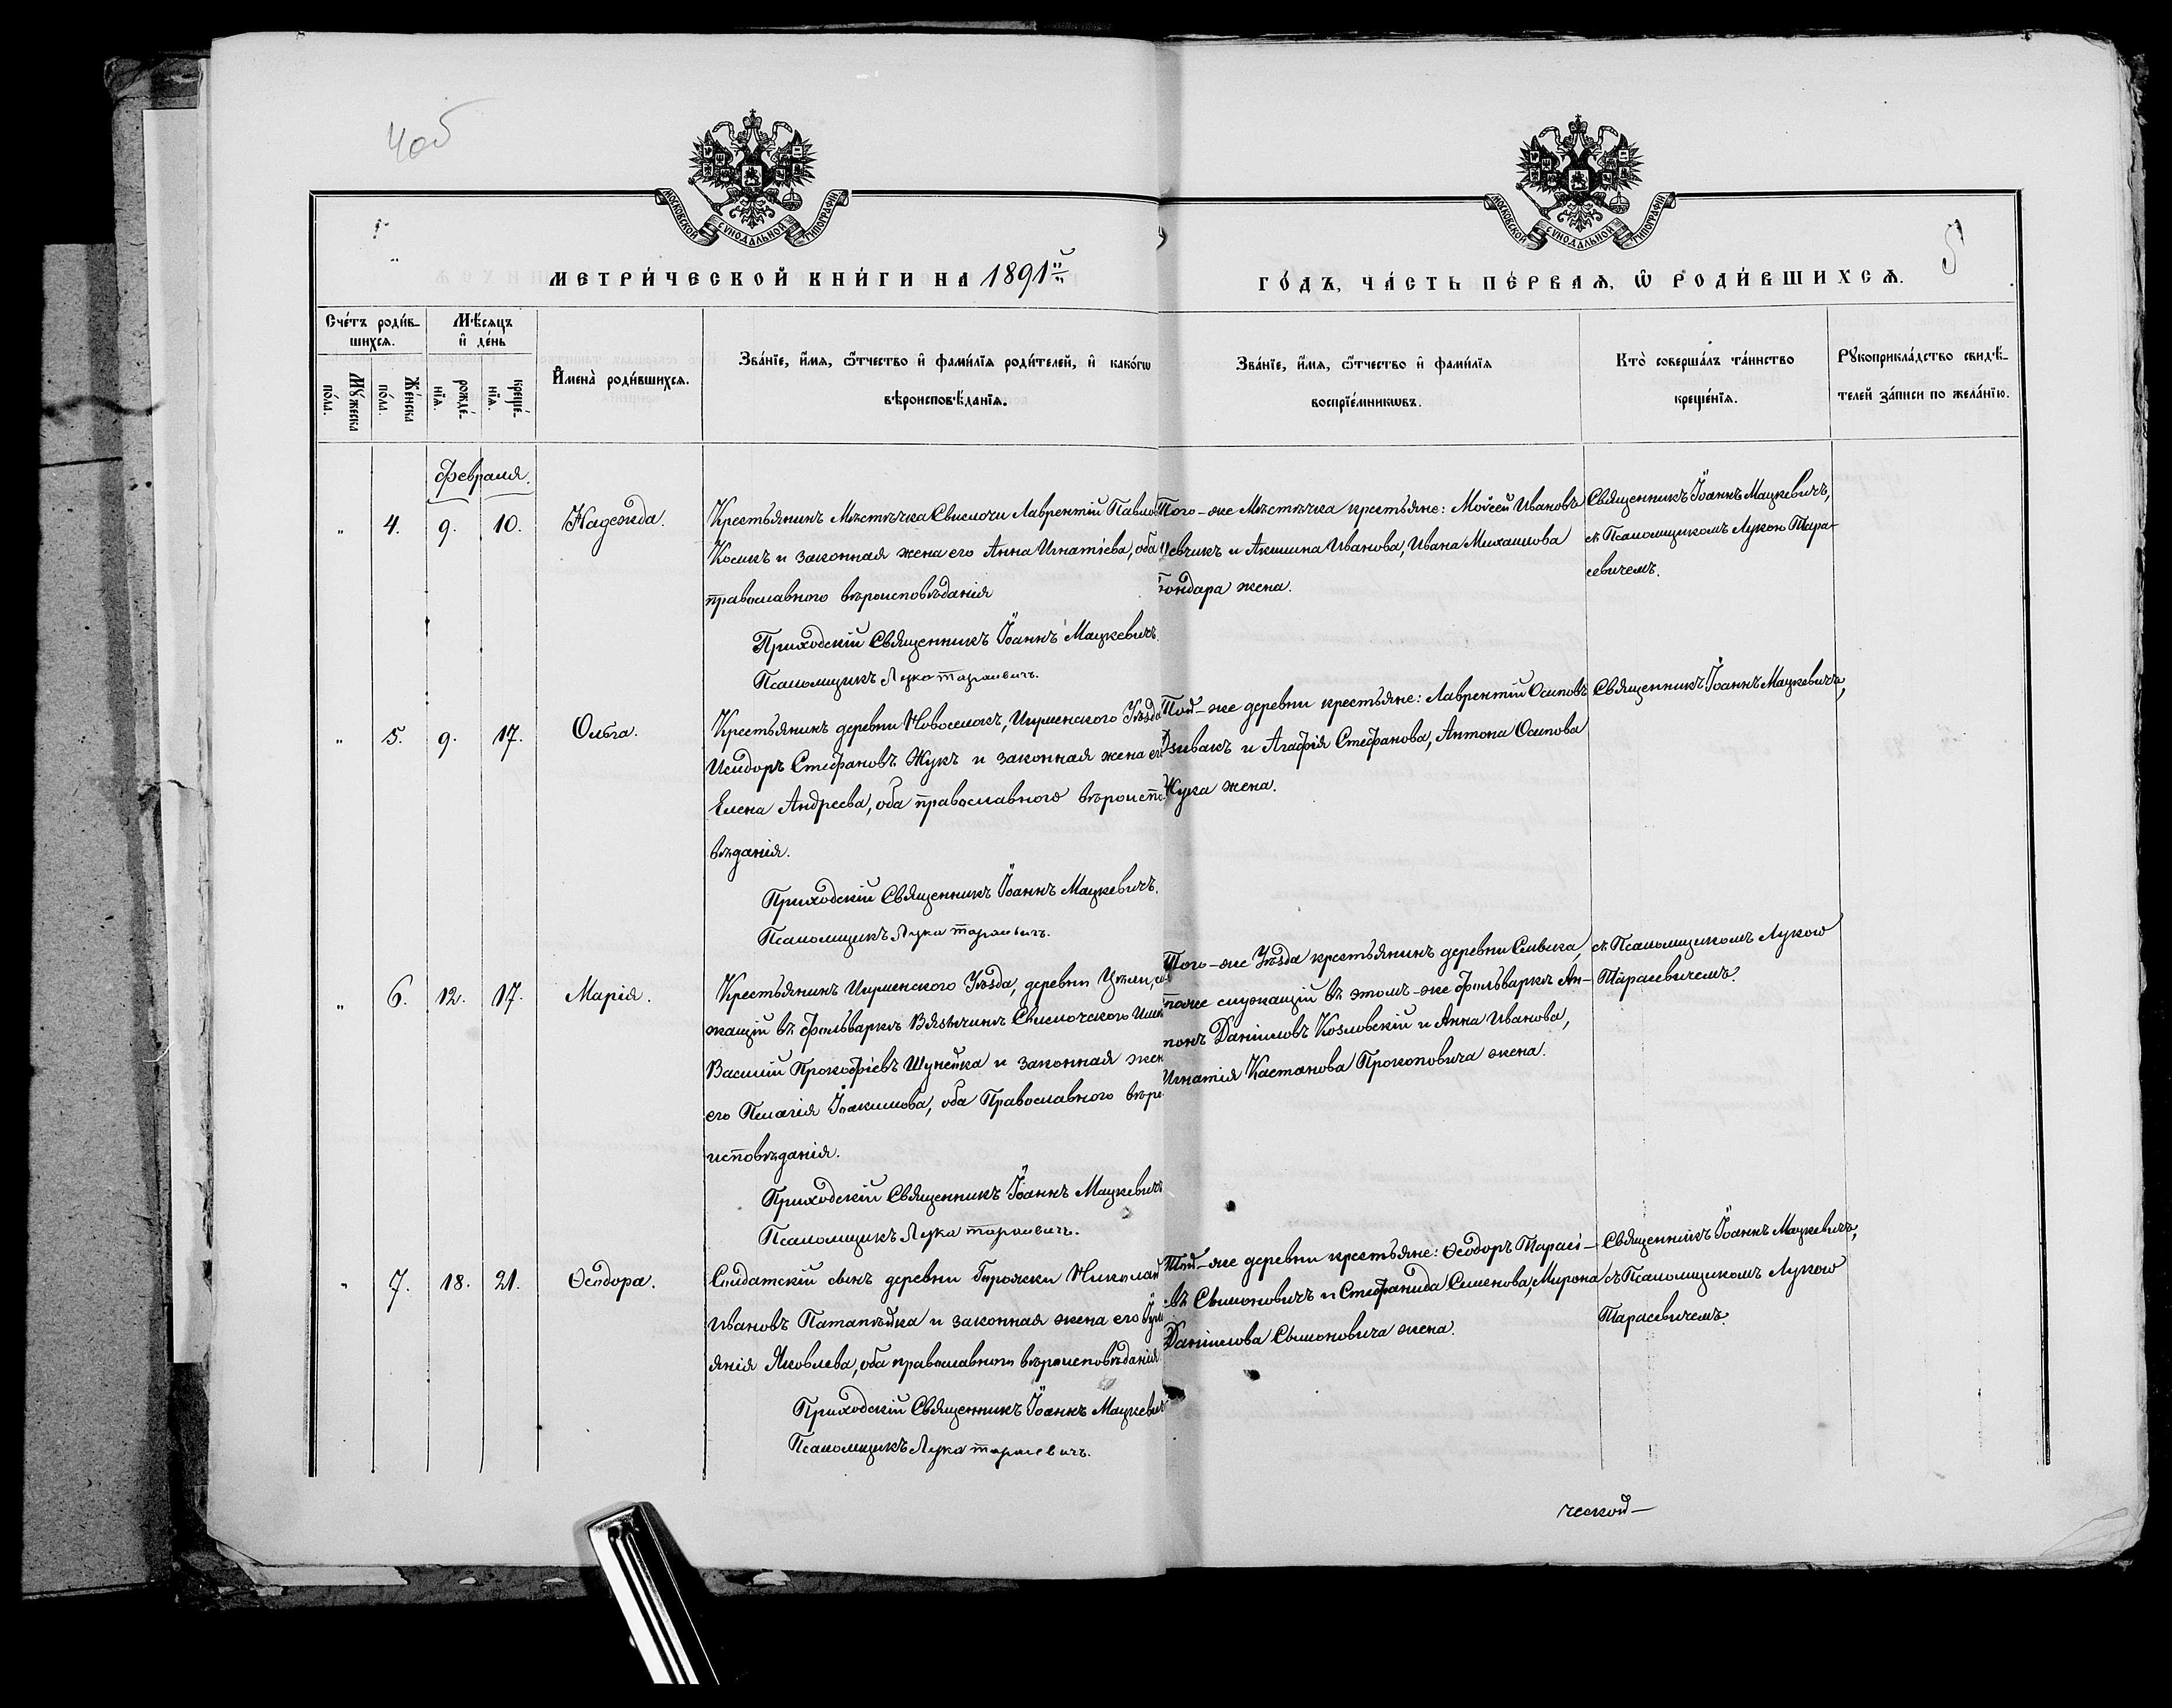 4об
5
МОСКОВСКОЙ СѴНОДАЛЬНОЙ ТИПОГРАФІИ
МОСКОВСКОЙ СѴНОДАЛЬНОЙ ТИПОГРАФІИ
МЕТРИ́ЧЕСКОЙ КНИ́ГИ НА 1891й
ГО́ДЪ, ЧА́СТЬ ПЕ́РВАѦ, Ѽ РОДИ́ВШИХСѦ.
Сче́тъ роди́в-
шихсѧ.
Мѣ́сѧцъ
и҆ де́нь
Мꙋ́жеска
по́ла.
Же́нска
по́ла.
рожде́-
нїѧ.
креще́-
нїѧ.
И҆мена̀ роди́вшихсѧ.
Зва́нїе, и҆́мѧ, ѻ҆́тчество и҆ фами́лїѧ роди́телей, и҆ како́гѡ
вѣроисповѣ́данїѧ.
Зва́нїе, и҆́мѧ, ѻ҆́тчество и҆ фами́лїѧ
воспрїе́мникѡвъ.
Кто̀ соверша́лъ та́инство
креще́нїѧ.
Рꙋкоприкла́дство свидѣ́-
телей за́писи по жела́нїю.
Февраля.
" 4. 9. 10. Надежда.
Крестьянинъ Мѣстѣчка Свислочи Лаврентій Павло
Косикъ и законная жена его Анна Игнатіева, оба
православнаго вѣроисповѣданія
Приходскій Священникъ Іоаннъ Мацкевичъ.
Псаломщикъ Лука Тарасевичъ.
Того-же Мѣстѣчка крестьяне: Моѵсей Ивановъ
Шевчикъ и Акилина Иванова, Ивана Михаилова
Гондара жена.
Священникъ Іоаннъ Мацкевичъ,
съ Псаломщикомъ Лукою Тара-
севичемъ.
" 5. 9. 17. Ольга.
Крестьянинъ деревни Новоселокъ, Игуменского Уѣзда
Исидоръ Стефановъ Жукъ и законная жена его
Елена Андреева, оба православного вѣроиспо
вѣданія.
Приходскій Священникъ Іоаннъ Мацкевичъ.
Псаломщикъ Лука Тарасевичъ.
Той-же деревни крестьяне: Лаврентій Осиповъ
Дзивакъ и Агафія Стефанова, Антона Осипова
Жука жена.
Священникъ Іоаннъ Мацкевичъ,
" 6. 12. 17. Марія.
Крестьянинъ Игуменского Уѣзда, деревни Цѣли, слу
жащій въ фольваркѣ Вязычинѣ Свислочского Имѣ
Василій Прокофіевъ Шунейка и законная жен
его Пелагія Іоакимова, оба Православного вѣро
исповѣданія.
Приходскій Священникъ Іоаннъ Мацкевичъ
Псаломщикъ Лука Тарасевичъ.
Того-же Уѣзда крестьянинъ деревни Сивика,
также служащій въ этомъ-же фольваркѣ Ан-
тонъ Даніиловъ Козловскій и Анна Иванова,
Игнатія Кастанова Прокоповича жена.
съ Псаломщикомъ Лукою
Тарасевичемъ.
" 7. 18. 21. Ѳеодора.
Солдатскій сынъ деревни Николай
Ивановъ Патапѣйка и законная жена его Іул
янія Яковлева, оба православного вѣроисповѣданія
Приходскій Священникъ Іоаннъ Мацкевич
Псаломщикъ Лука Тарасевичъ.
Той-же деревни крестьяне: Ѳеодоръ Тарасі-
евъ Сымоновичъ и Стефанида Семенова, Мирона
Даніилова Сымоновича жена.
Священникъ Іоаннъ Мацкевичъ,
съ Псаломщикомъ Лукою
Тарасевичемъ.
ческой-